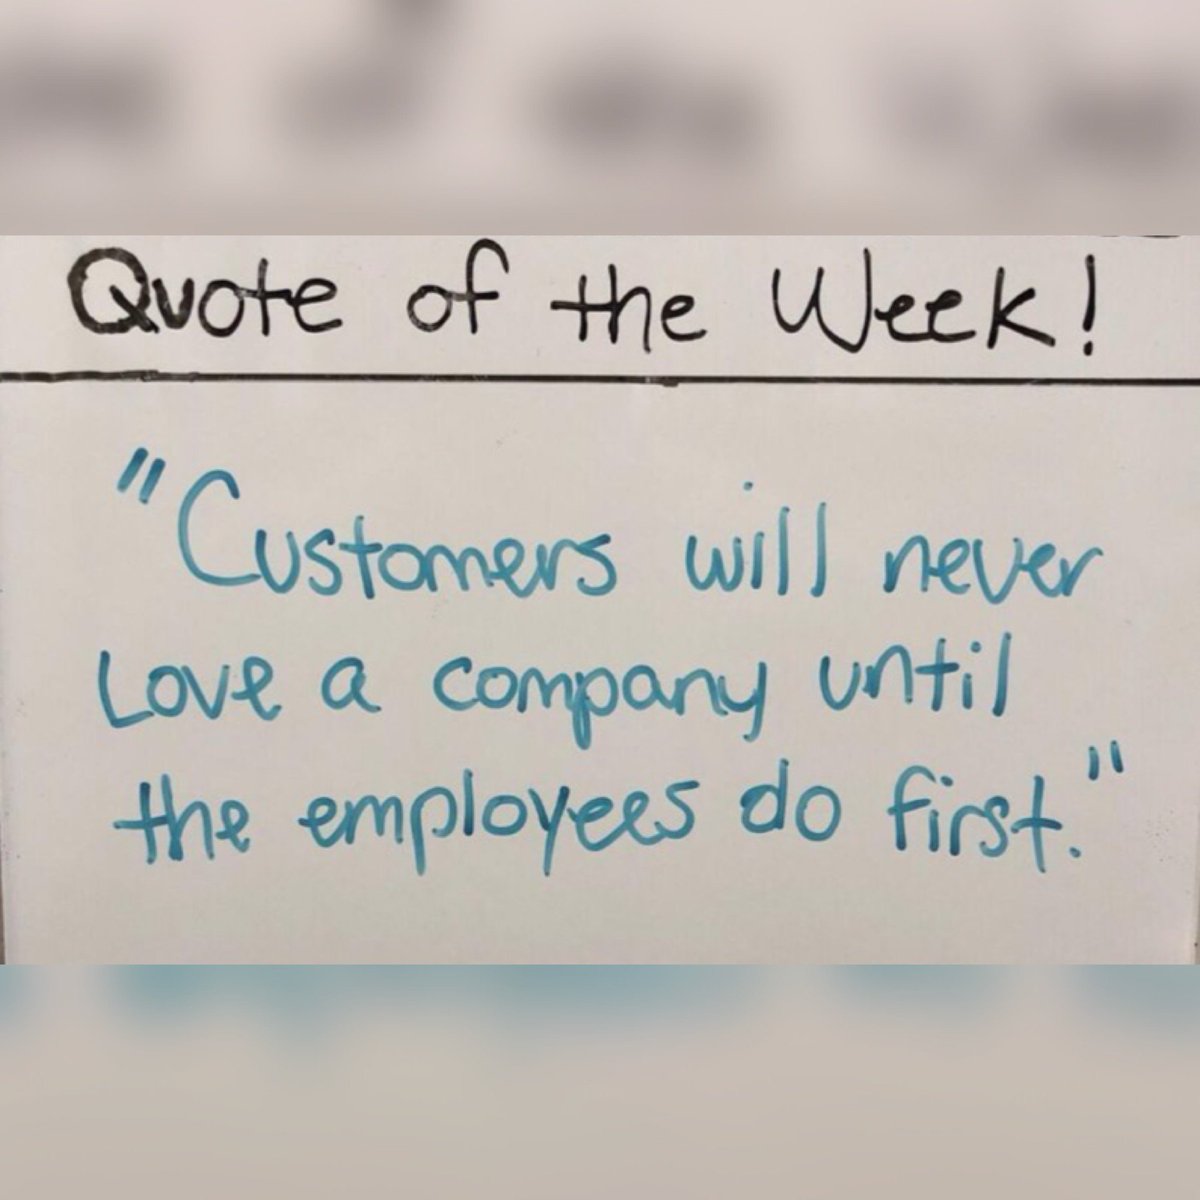 Quote of the Week!
"Customers will never
Love a company until
the employees do first."